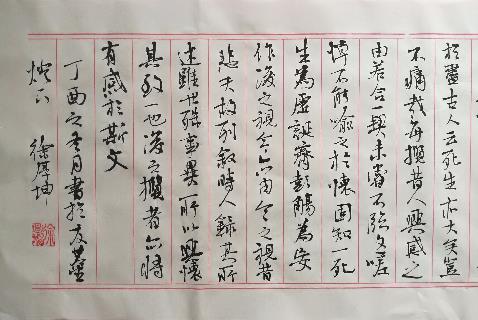 於盡古人云死生亦大矣豈
不痛哉每攬昔人興感之
由若合一契未嘗不臨文嗟
悼不能喻之於懷固知一死
生為虛誕齊彭殤為妄
作後之視今亦由今之視昔
悲夫故列敘時人錄其所
述雖世殊事異所以興懷
其致一也後之攬者亦將
有感於斯文
丁酉之冬月書於友
徐 坤